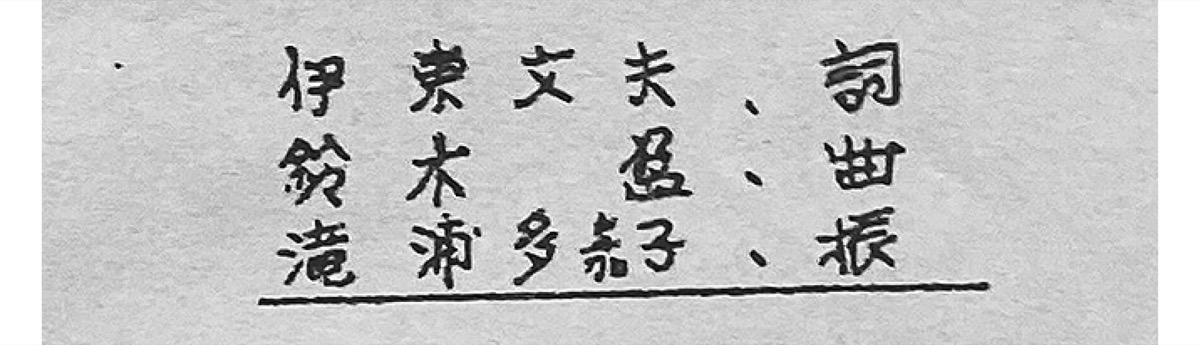 伊東文夫、詞
鈴木　盈、曲
滝浦多嘉子、振